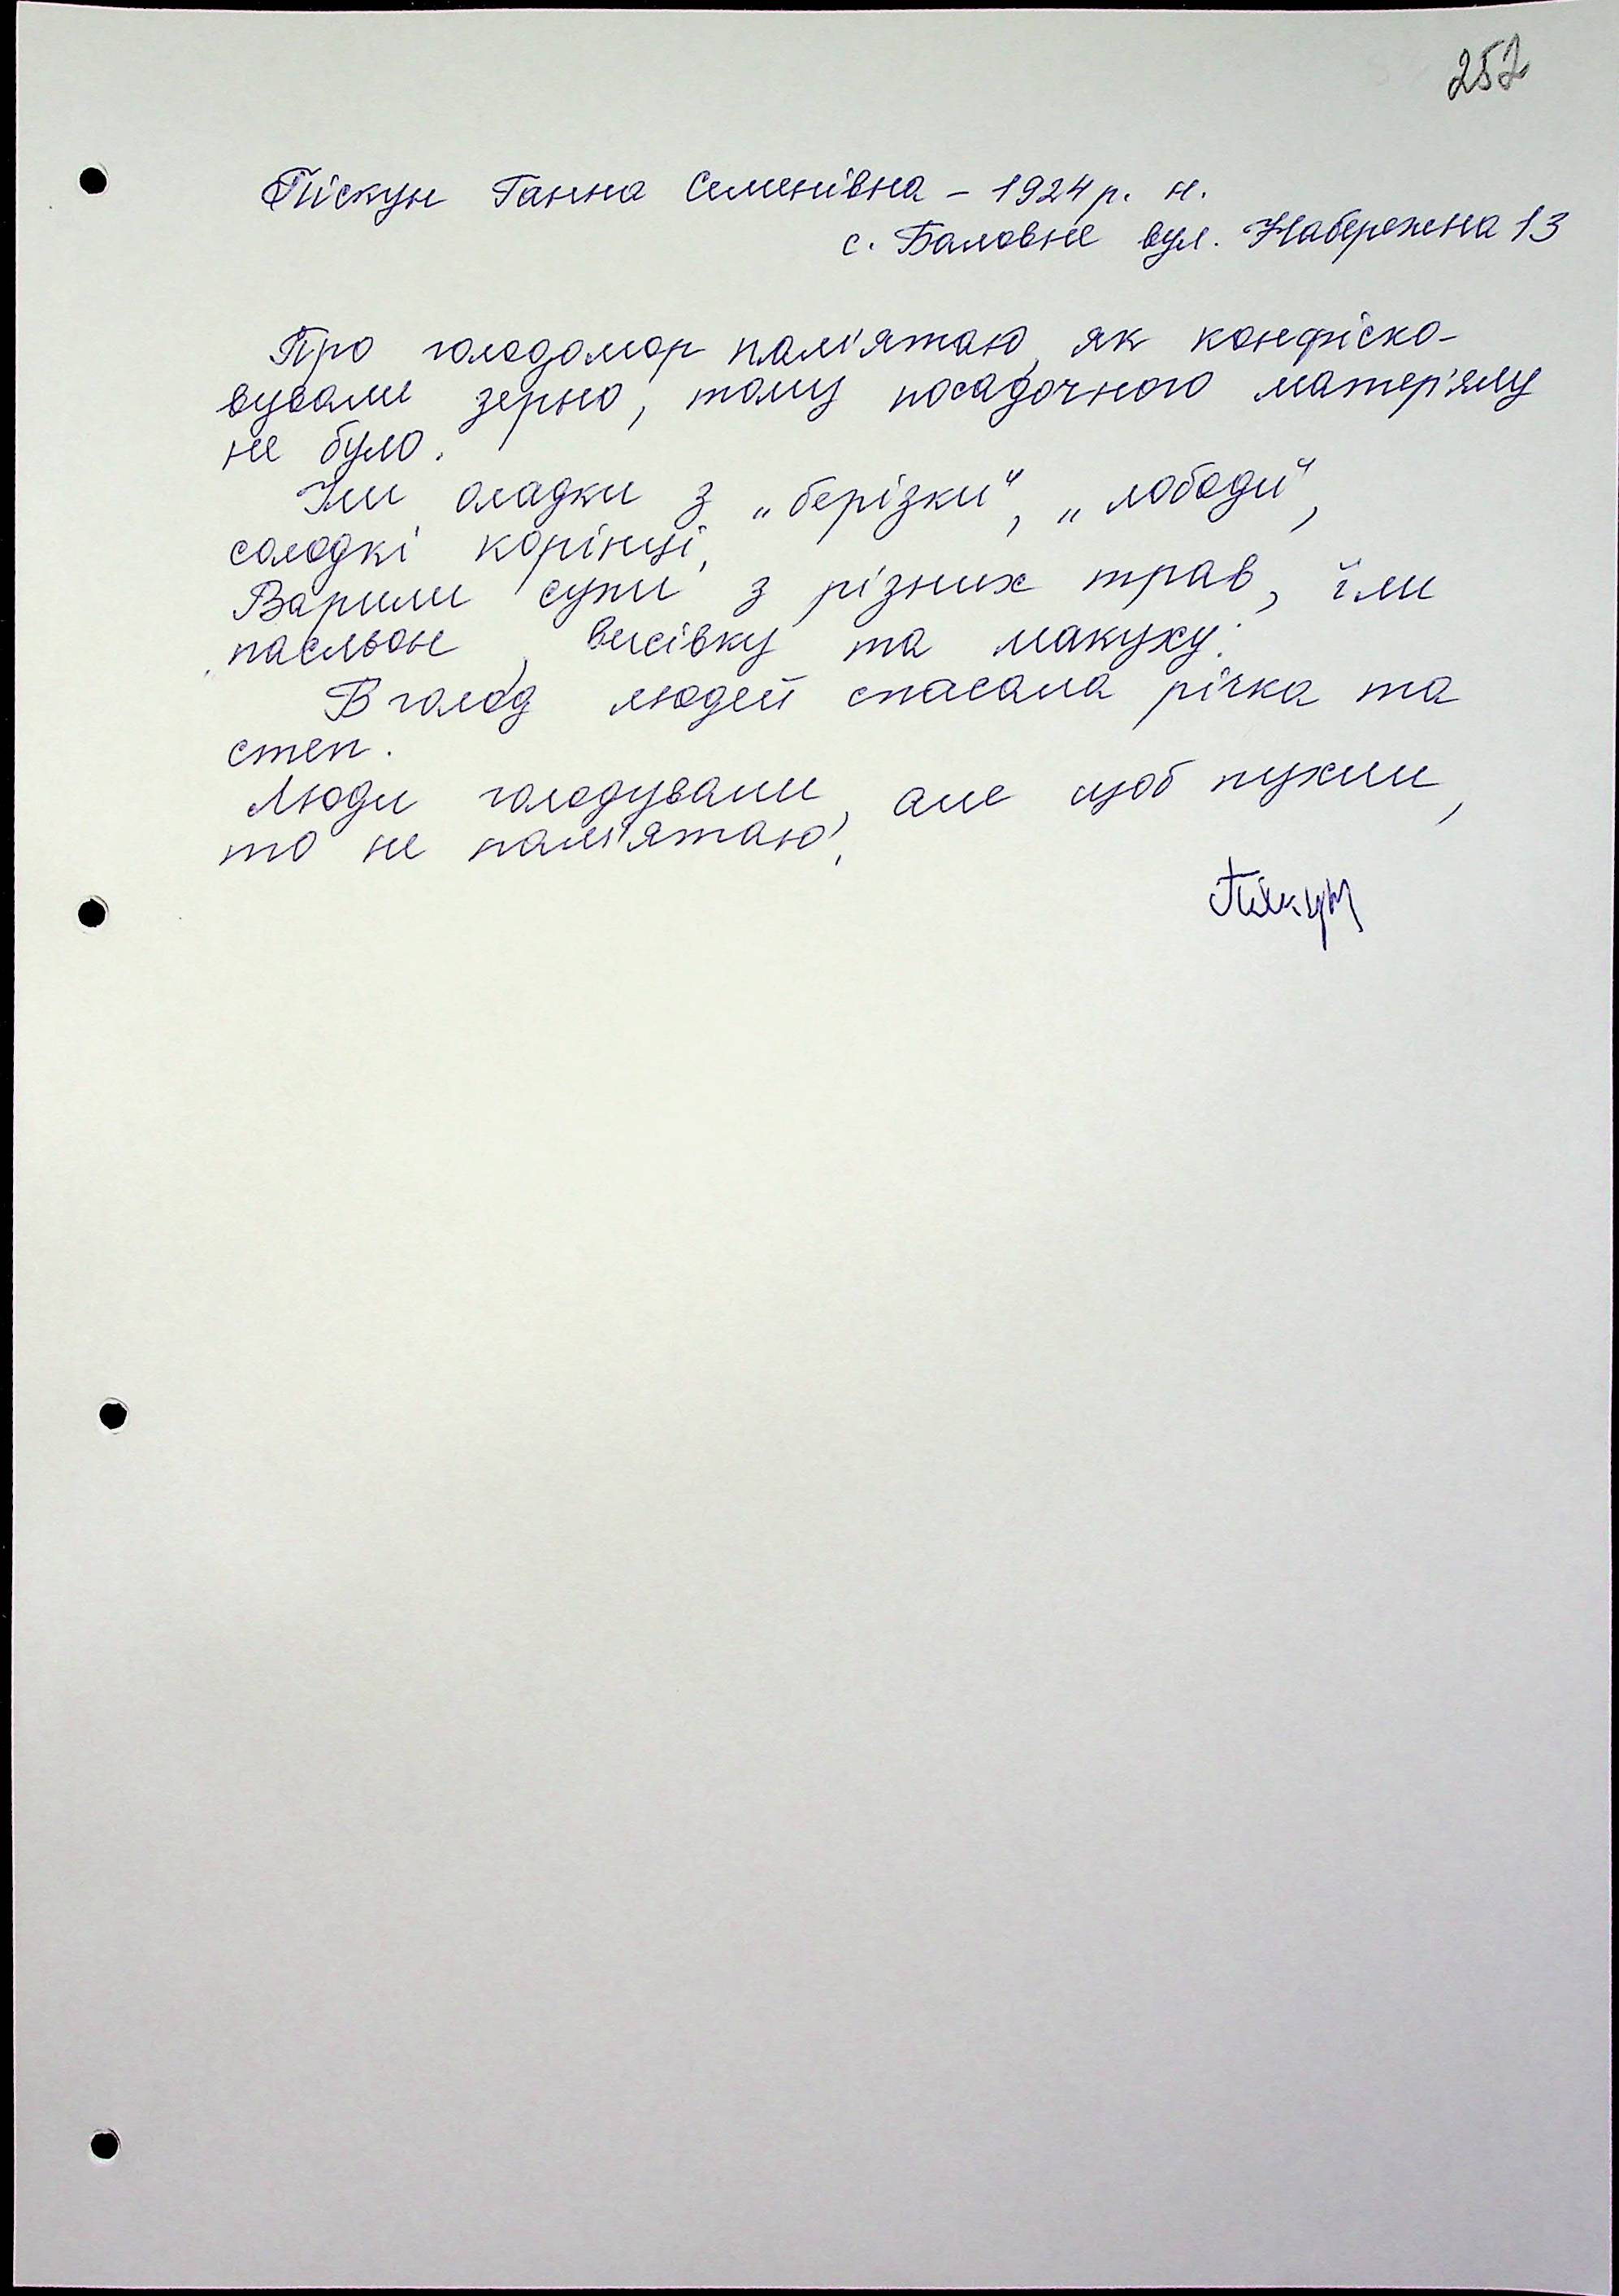 252
Піскун Ганна Семенівна - 1924 р. н.
с. Баловне вул. Набережна 13
Про голодомор пам'ятаю, як конфіско-
вували зерно, тому посадочного матер'ялу
не було.
Їли оладки з „берізки", „лободи",
солодкі корінці,
Варили супи з різних трав, їли
пасльон, висівку та макуху.
В голод людей спасала річка та
степ.
Люди голодували, але щоб пухли,
то не пам'ятаю,
Піскун